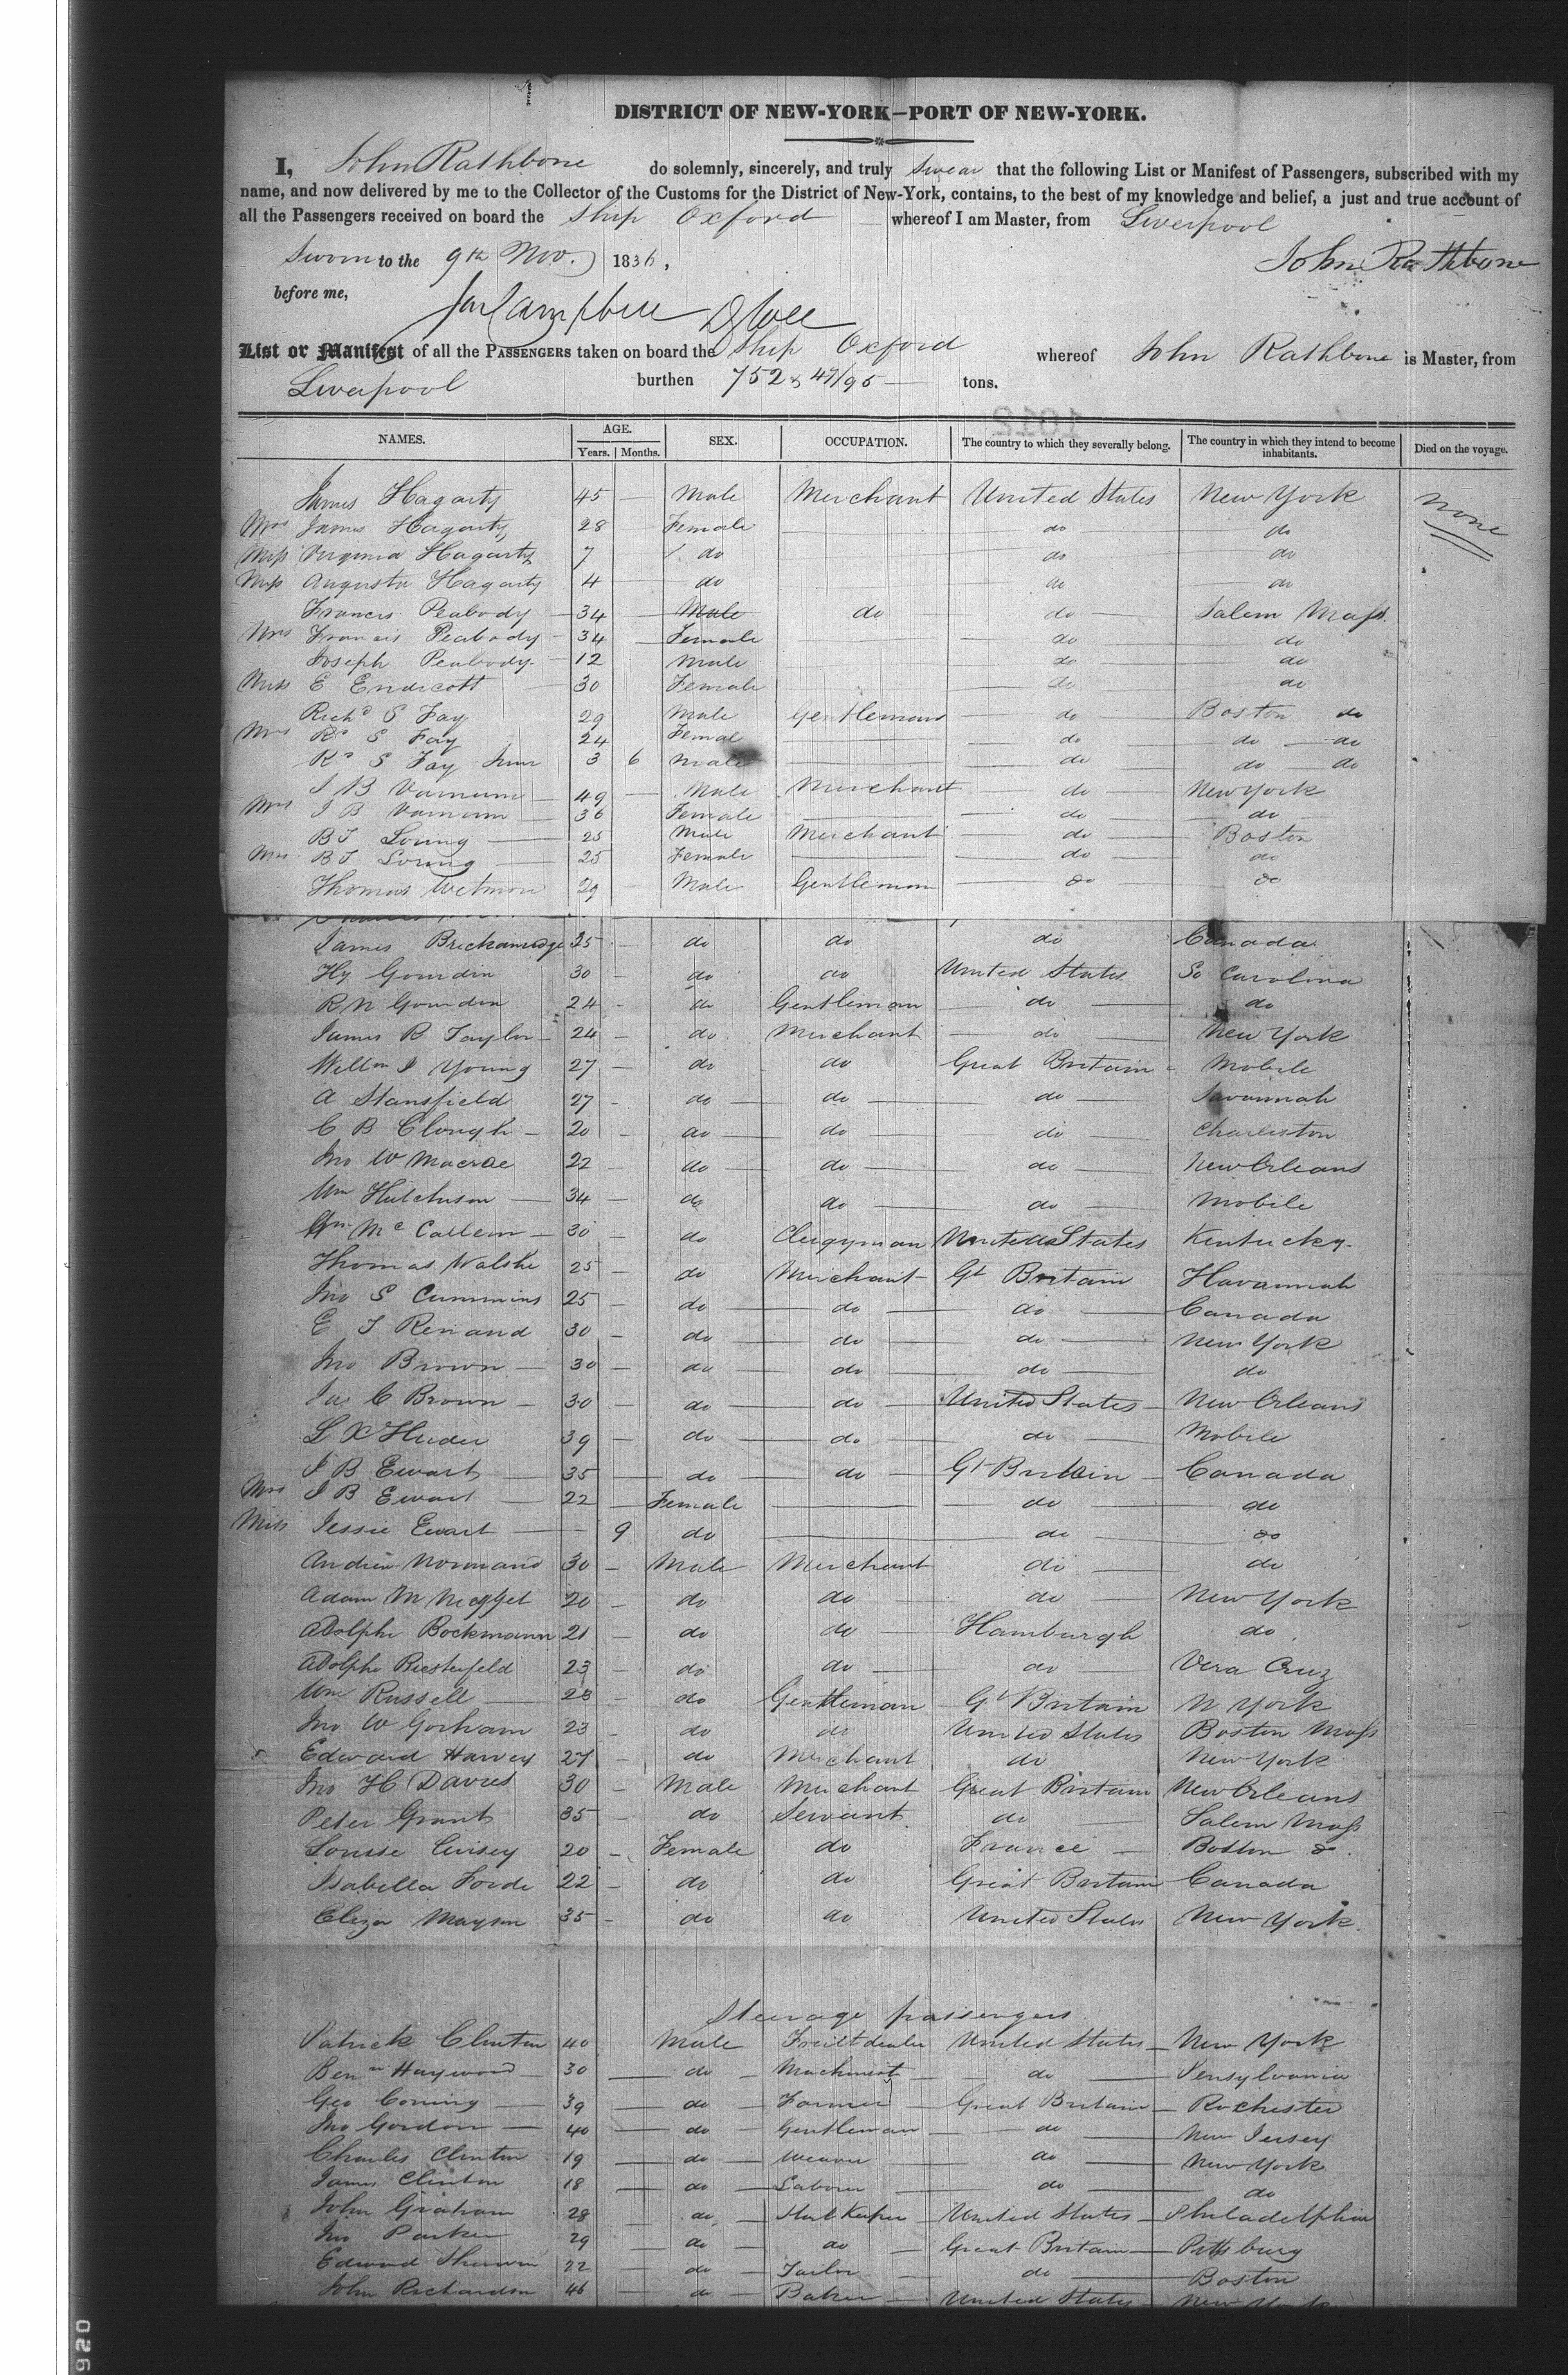 1
DISTRICT OF NEW-YORK—PORT OF NEW-YORK.
I, John Rathbone do solemnly, sincerely, and truly swear that the following List or Manifest of Passengers, subscribed with my
name, and now delivered by me to the Collector of the Customs for the District of New-York, contains, to the best of my knowledge and belief, a just and true account of
all the Passengers received on board the Ship Oxford whereof I am Master, from Liverpool
Sworn to the 9th Nov. 1836, John Rathbone
before me,
Campbell D Coll
List or Manifest of all the PASSENGERS taken on board the Ship Oxford whereof John Rathbone is Master, from
Liverpool burthen 752 & 47/95 tons.
1012
NAMES. AGE. Years. Months. SEX. OCCUPATION. The country to which they severally belong. The country in which they intend to become inhabitants. Died on the voyage.
James Hagarty 45 Male Merchant United States New York none
Mrs James Hagarty 28 Female do do
Miss Virginia Hagarty 7 do do do
Miss Augusta Hagarty 4 do do do
Francis Peabody 34 Male do do Salem Mass.
Mrs Francis Peabody 34 Female do do
Joseph Peabody 12 Male do do
Miss E Endicott 30 Female do do
Richd S Fay 29 Male Gentleman do Boston do
Mrs Rd S Fay 24 Femal do do do
Rd S Fay Junr 3 6 Male do do do
J B Varnum 49 Male Merchant do New York
Mrs J B Varnum 36 Female do do
B J Loring 25 Male Merchant do Boston
Mrs B J Loring 25 Female do do
Thomas Wetmore 29 Male Gentleman do do
James Breckanridge 25 do do do Canada
Hy Gourdin 30 do do United States So Carolina
R N Gourdin 24 do Gentleman do do
James R Taylor 24 do Merchant do New York
Willm J Young 27 do do Great Britain Mobile
A Stansfield 27 do do do Savannah
C B Clough 20 do do do Charleston
Jno W Macrae 22 do do do New Orleans
Wm Hutchison 34 do do do Mobile
Mc Callem 30 do Clergyman United States Kentucky
Thomas Walshe 25 do Merchant Gt Britain Havannah
Jno S Cummins 25 do do do Canada
E J Renaud 30 do do do New York
Jno Brown 30 do do do do
Jas C Brown 30 do do United States New Orleans
39 do do do Mobile
J B Ewart 35 do do Gt Britain Canada
Mrs J B Ewart 22 Female do do
Miss Jessie Ewart 9 do do do
Andrew Normand 30 Male Merchant do do
Adam M 20 do do do New York
Adolphe Bockmann 21 do do Hamburgh do
Adolphe Biesterfeld 23 do do do Vera Cruz
Wm Russell 28 do Gentleman Gt Britain N York
Jno W Gorham 23 do do United States Boston Mass
Edward Harvey 27 do Merchant do New York
Jno H Davies 30 Male Merchant Great Britain New Orleans
Peter Grant 35 do Servant do Salem Mass
Louise 20 Female do France Boston do
Isabella Forde 22 do do Great Britain Canada
Eliza Mayson 35 do do United States New York.
Steerage passengers
Patrick Clinton 40 Male Fruit dealer United States New York
Benn Haywood 30 do Machinist do Pensylvania
Geo Coming 39 do Farmer Great Britain Rochester
Jno Gordon 40 do Gentleman do New Jersey
Charles Clinton 19 do Weaver do New York
James Clinton 18 do Laborer do do
John Graham 28 do Keeper United States Philadelphia
Jno Parker 29 do do Great Britain Pittsburg
Edward 22 do Tailor do Boston
John Richardson 46 do Baker United States New York
920